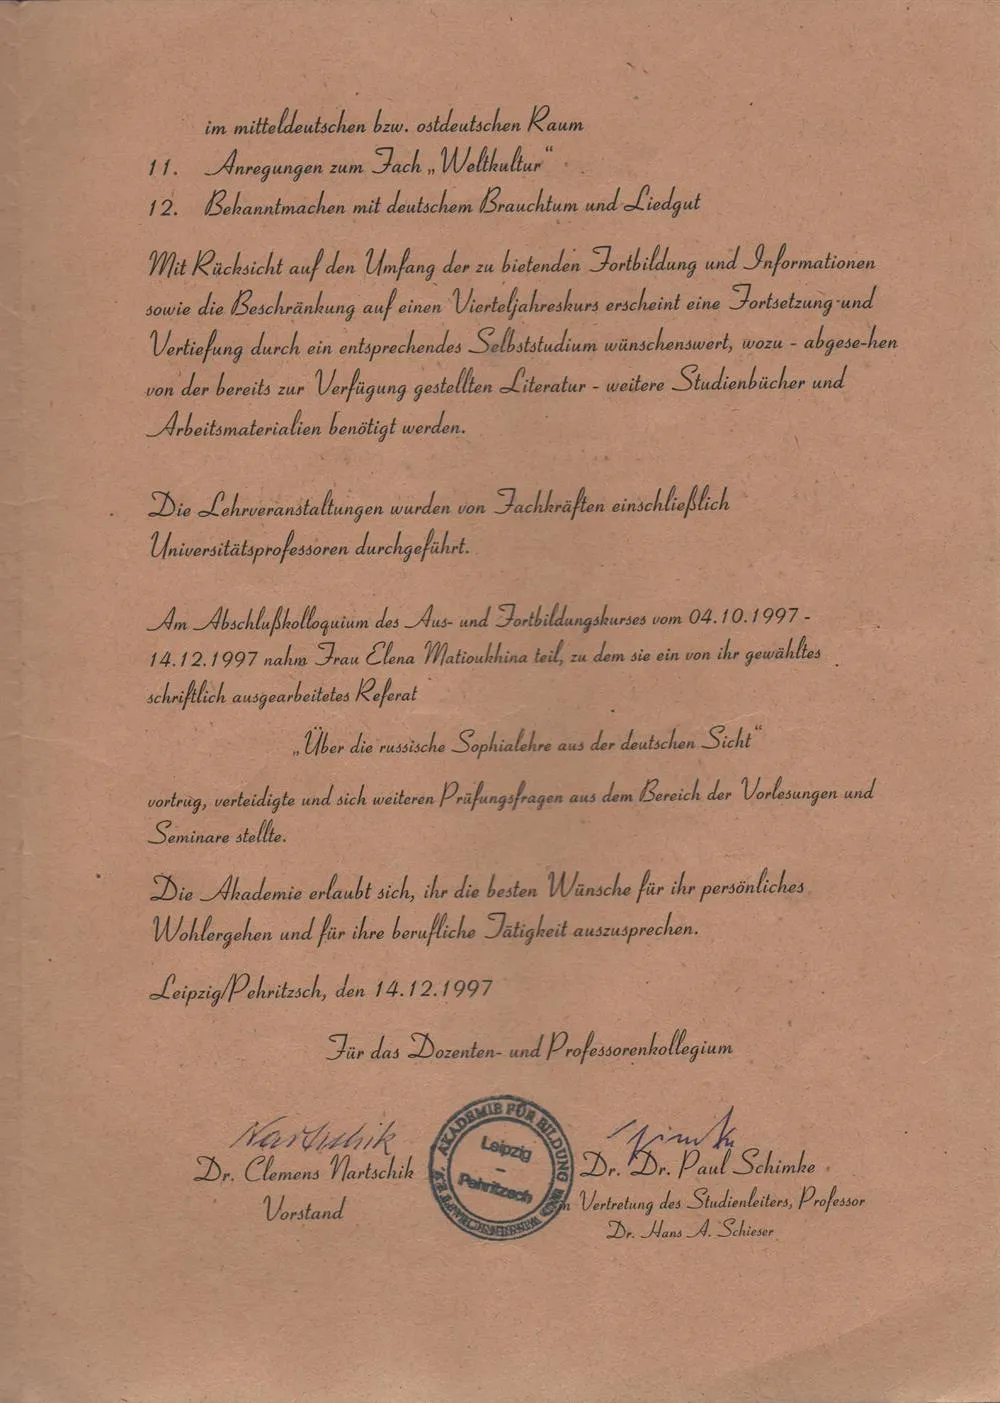 im mitteldeutschen bzw. ostdeutschen Raum
11. Anregungen zum Fach „Weltkultur“
12. Bekanntmachen mit deutschem Brauchtum und Liedgut
Mit Rücksicht auf den Umfang der zu bietenden Fortbildung und Informationen
sowie die Beschränkung auf einen Vierteljahreskurs erscheint eine Fortsetzung und
Vertiefung durch ein entsprechendes Selbststudium wünschenswert, wozu - abgese-hen
von der bereits zur Verfügung gestellten Literatur - weitere Studienbücher und
Arbeitsmaterialien benötigt werden.
Die Lehrveranstaltungen wurden von Fachkräften einschließlich
Universitätsprofessoren durchgeführt.
Am Abschlußkolloquium des Aus- und Fortbildungskurses vom 04.10.1997 -
14.12.1997 nahm Frau Elena Matioukhina teil, zu dem sie ein von ihr gewähltes
schriftlich ausgearbeitetes Referat
„Über die russische Sophialehre aus der deutschen Sicht“
vortrug, verteidigte und sich weiteren Prüfungsfragen aus dem Bereich der Vorlesungen und
Seminare stellte.
Die Akademie erlaubt sich, ihr die besten Wünsche für ihr persönliches
Wohlergehen und für ihre berufliche Tätigkeit auszusprechen.
Leipzig/Pehritzsch, den 14.12.1997
Für das Dozenten- und Professorenkollegium
Nartschik
AKADEMIE FÜR BILDUNG UND
Leipzig
-
Pehritzsch
Dr. Clemens Nartschik
Vorstand
Dr. Dr. Paul Schimke
in Vertretung des Studienleiters, Professor
Dr. Hans A. Schieser